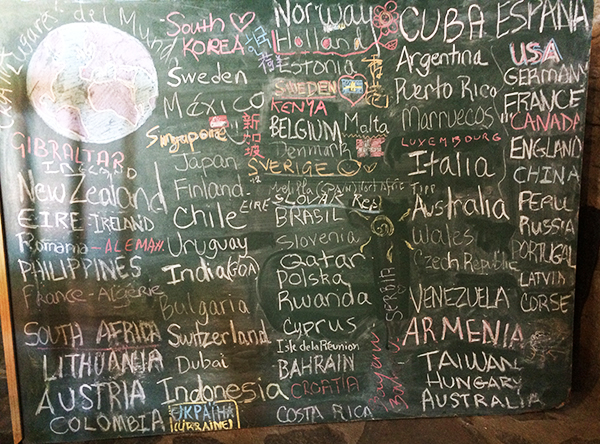 Lugares del Mundo
GIBRALTAR
ICELAND
New Zealand
EIRE-IRELAND
Romania-ALEMAN
PHILIPPINES
France-Algérie
SOUTH AFRICA
LITHUANIA
AUSTRIA
COLOMBIA
South
KOREA
Sweden
México
Singapore
新加坡
Japan
Finland
Chile
EIRE
Uruguay
India (GOA)
Bulgaria
Switzerland
Dubai
Indonesia
УКРАЇНА
(UKRAINE)
Norway
Holland
Estonia
SWEDEN
KENYA
BELGIUM
Malta
Denmark
SVERIGE
SLOVAK REP
BRASIL
Slovenia
Qatar
Polska
Rwanda
Cyprus
Isle de la Réunion
BAHRAIN
CROATIA
COSTA RICA
SERBIA
CUBA
Argentina
Puerto Rico
Marruecos
LUXEMBOURG
Italia
Australia
Wales
Czech Republic
VENEZUELA
ARMENIA
TAIWAN
HUNGARY
AUSTRALIA
ESPAÑA
USA
GERMANY
FRANCE
CANADA
ENGLAND
CHINA
PERU
RUSSIA
PORTUGAL
LATVIA
CORSE